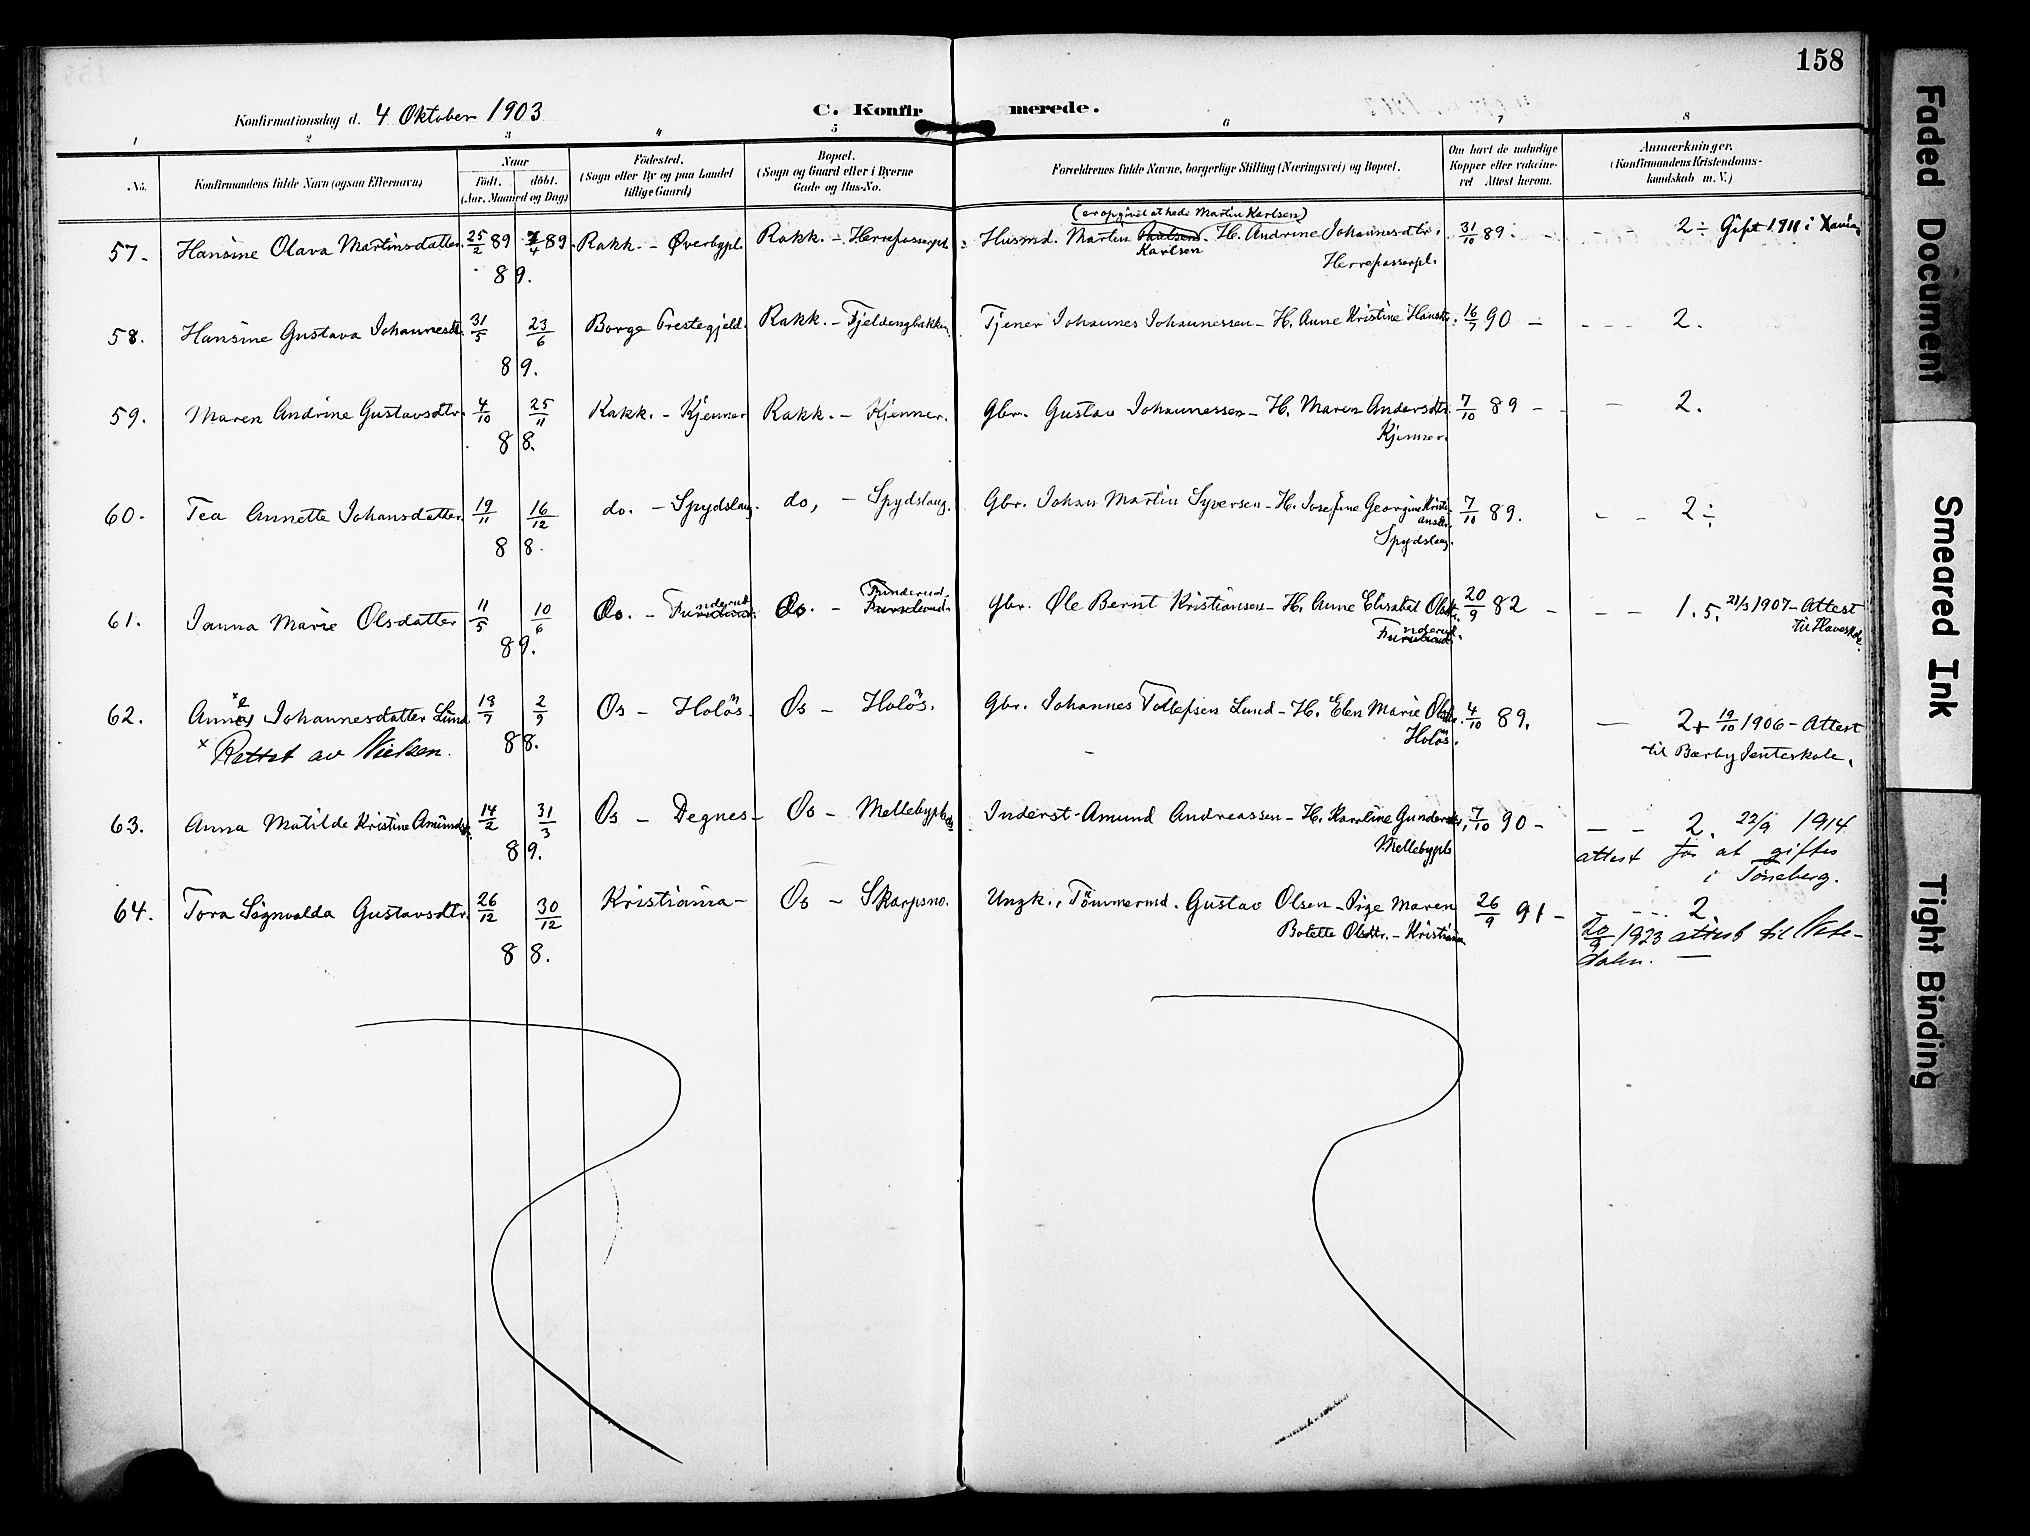 158
Konfirmationsdag d. 4 Oktober 1903
C. Konfirmerede.
1 2 3 4 5 6 7 8
No.
Konfirmandens fulde Navn (ogsaa Efternavn)
Naar
Födt. döbt.
(Aar, Maaned og Dag)
Födested.
(Sogn eller By og paa Landet
tillige Gaard)
Bopæl.
(Sogn og Gaard eller i Byerne
Gade og Hus-No.
Forældrenes fulde Navne, borgerlige Stilling (Næringsvei) og Bopæl.
Om havt de naturlige
Kopper eller vakcine-
ret Attest herom.
Anmærkninger.
(Konfirmandens Kristendoms-
kundskab m. V.)
(er opgivet at hede Martin Karlsen)
57. Hansine Olava Martinsdatter 25/2 89 7/4 89 Rakk. - Øverbypl. Rakk. - Herrepasserpl. Husmd. Martin Paulsen - H. Andrine Johannesdtr. 31/10 89 - - - 2 ÷ Gift 1911 i
89. Karlsen Herrepasserpl.
58. Hansine Gustava Johannesdtr. 31/5 23/6 Borge Prestegjeld. Rakk. - Fjeldengbakken. Tjener Johannes Johannessen - H. Anne Kristine Hansdtr. 16/7 90 - - - - 2.
89.
59. Maren Andrine Gustavsdtr. 4/10 25/11 Rakk. - Kjenner Rakk. - Kjenner. Gbr. Gustav Johannessen - H. Maren Andersdtr. 7/10 89 - - 2.
88. Kjenner.
60. Tea Annette Johansdatter. 19/11 16/12 do. - Spydslaug. do, - Spydslaug. Gbr. Johan Martin Syversen - H. Josefine Georgine Kristi-
ansdtr. 7/10 89. - - 2 ÷
88. Spydslaug.
61. Janna Marie Olsdatter 11/5 10/6 Do. - Funderud. Do. - Funderud. Gbr. Ole Bernt Kristiansen - H. Anne Elisabet Olsdtr. 20/9 82 - - - 1.5. 21/3 1907 - Attest
89. Funderud. til Haveskole.
62. Anne Johannesdatter Lund 18/7 2/9 Os - Holös. Os - Holös. Gbr. Johannes Tollefsen Lund - H. Elen Marie Olsdtr. 4/10 89. - 2+ 19/10 1906 - Attest
x Rettet av Nielsen. 88. Holös. til Bærby Jenteskole.
63. Anna Matilde Kristine Amundsdtr. 14/2 31/3 Os - Degnes - Os - Mellebypl. Inderst - Amund Andreassen - H. Karoline Gundersdtr, 7/10 90 - - - 2. 22/9 1914
89. Mellebypl. attest for at giftes
i Tönsberg.
64. Tora Sognvalda Gustavsdtr. 26/12 30/12 Kristiania - Os - Skarpsno. Ungk., Tömmermd. Gustav Olsen - Pige Maren 26/9 91 - - --- 2
88. Botette Olsdtr. - Kristiania 20/9 1923 attest til Nite-
dalen. -
Faded Document
Smeared Ink
Tight Binding